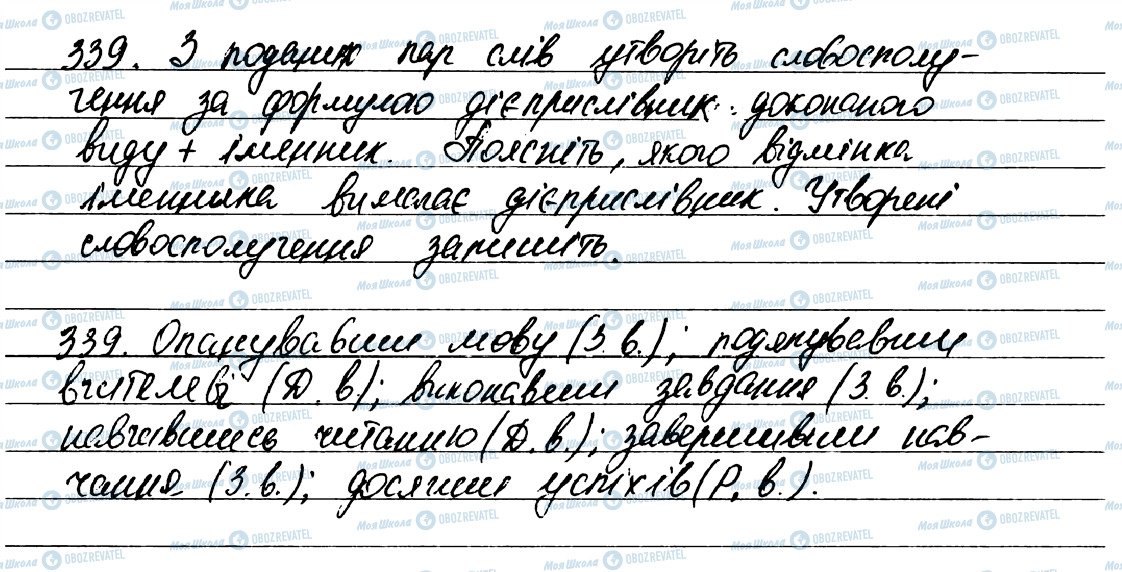 339. З поданих пар слів утворіть словосполу-
чення за формулою дієприслівник доконаного
виду + іменник. Поясніть, якого відмінка
іменника вимагає дієприслівник. Утворені
словосполучення запишіть.
339. Опанувавши мову (З. в.); подякувавши
вчителеві (Д. в); виконавши завдання (З. в.);
навчившись читанню (Д. в.); завершивши нав-
чання (З. в.); досягши успіхів (Р. в.).